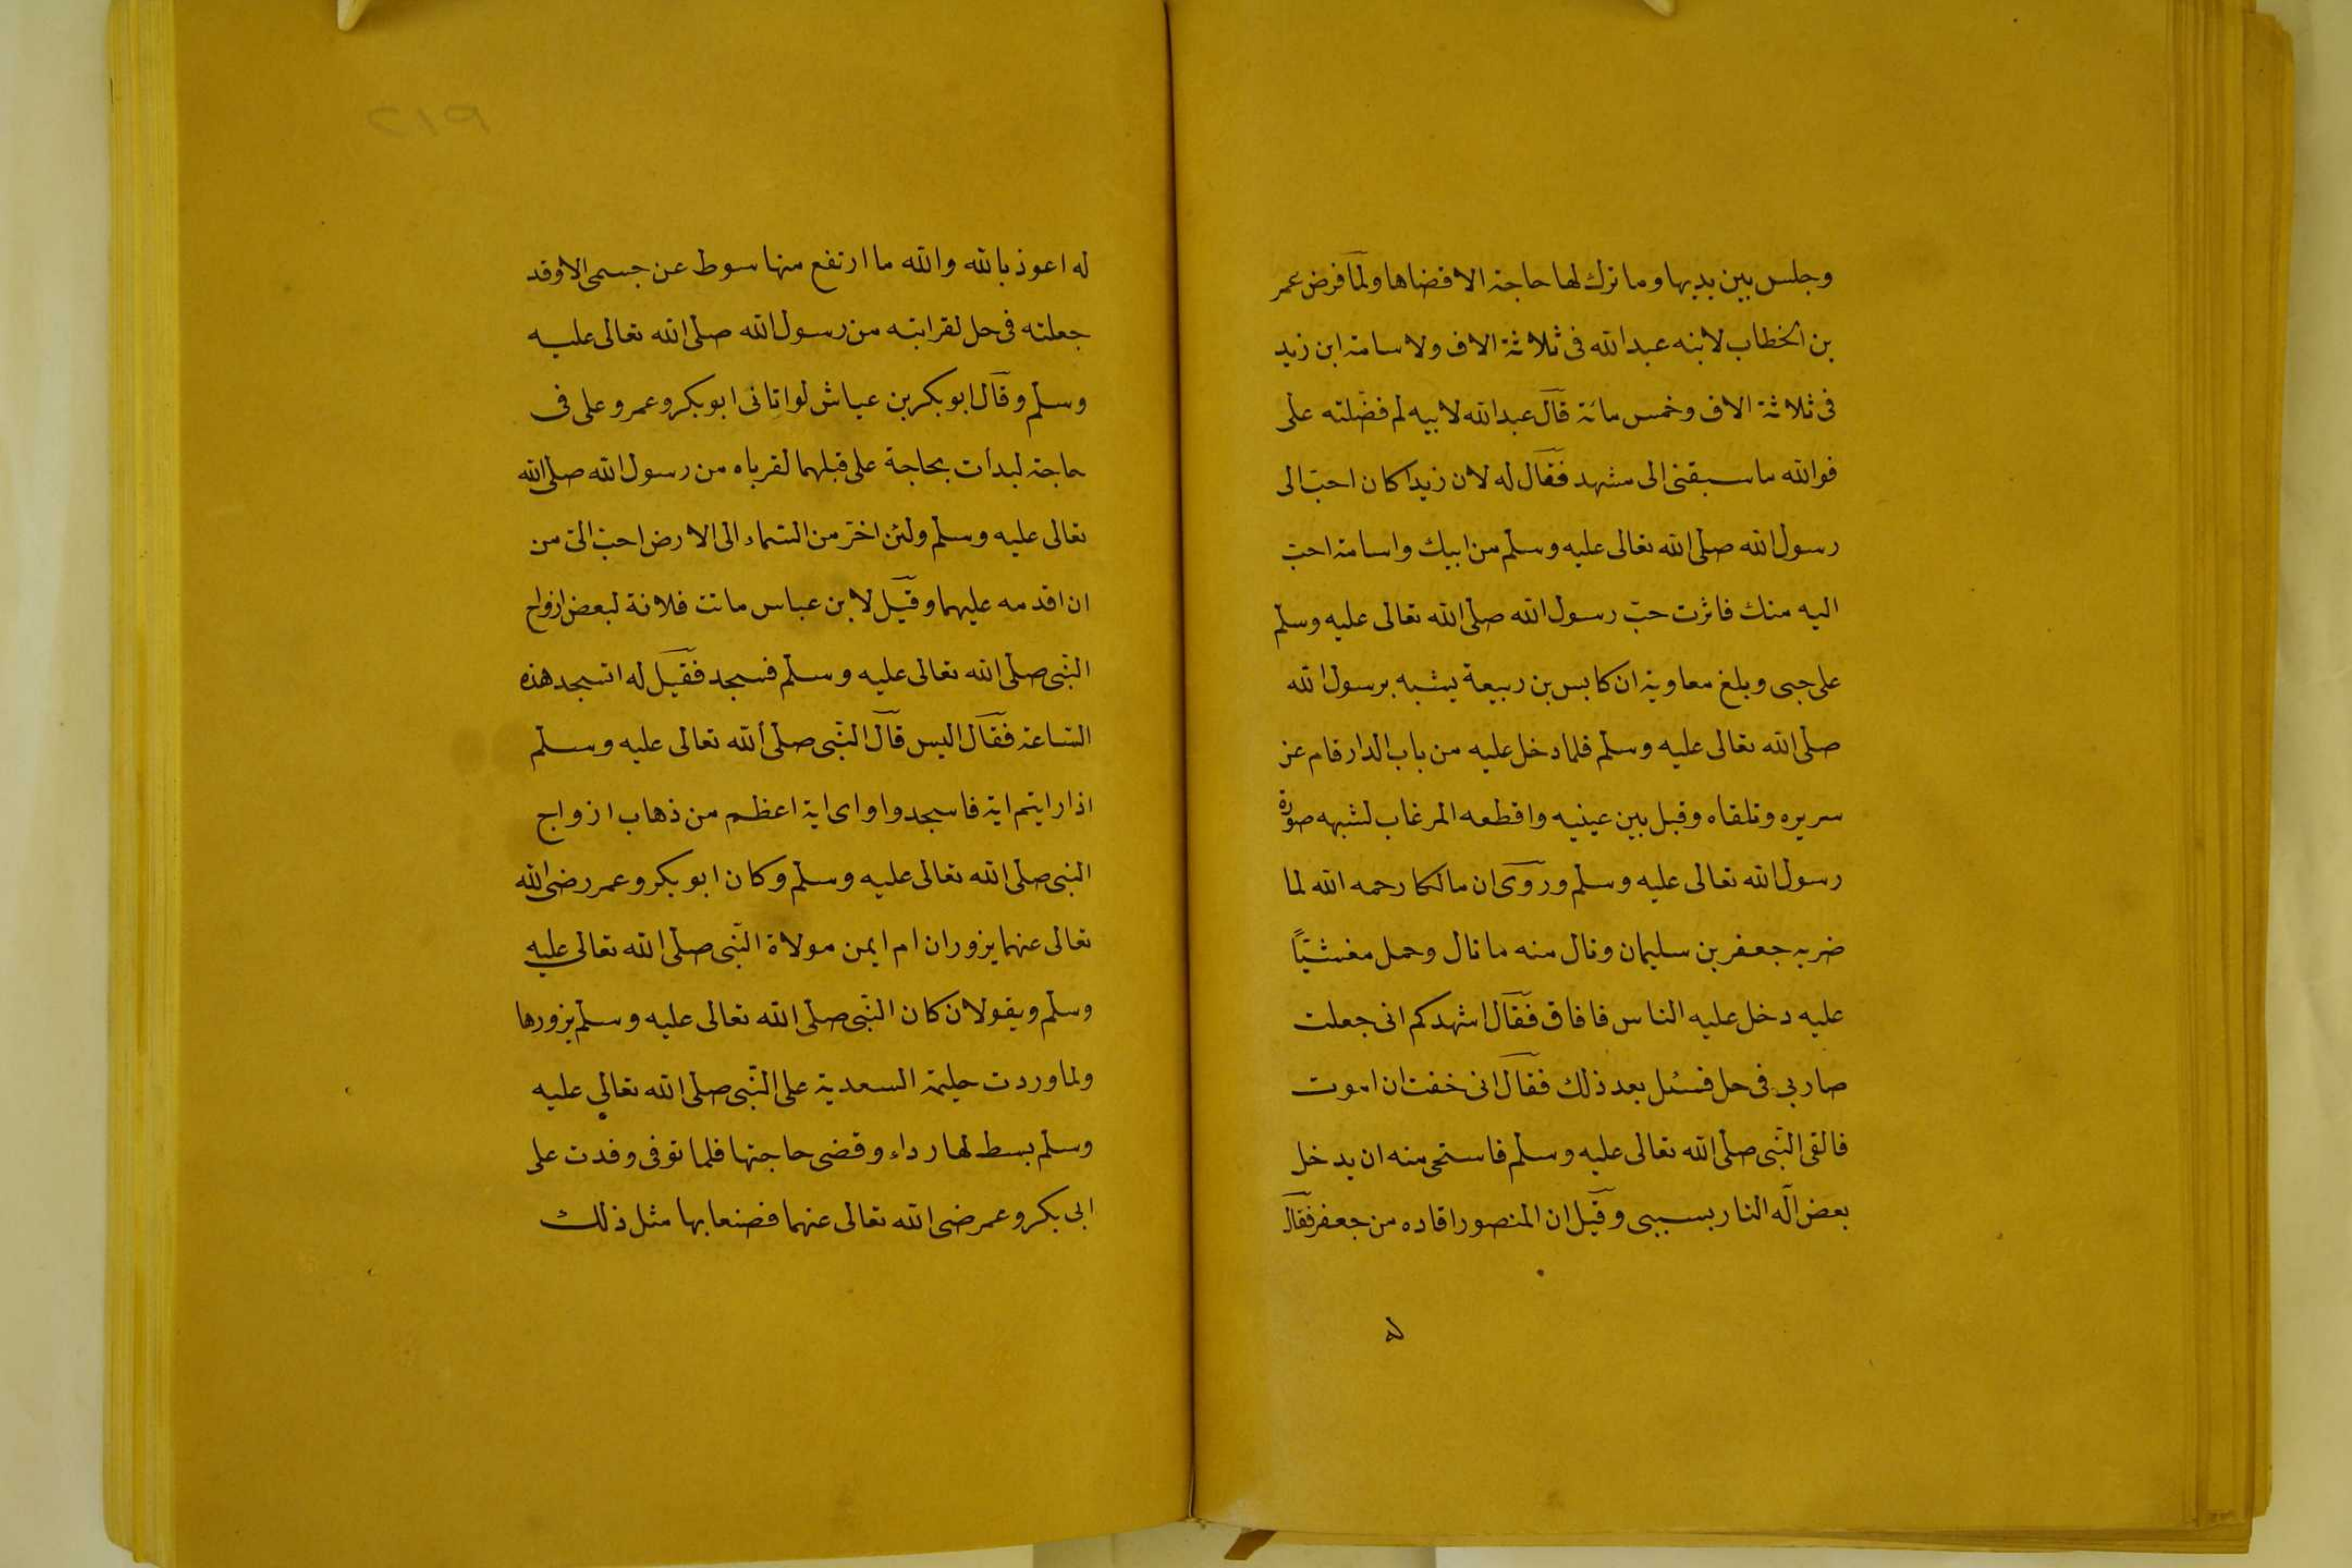 وجلس بين يديها وما ترك لها حاجة الا قضاها ولما فرض عمر
بن الخطاب لابنه عبد الله فى ثلاثة الاف ولاسامة ابن زيد
فى ثلاثة الاف وخمس مائة قال عبد الله لابيه لم فضلته على
فوالله ما سبقنى الى مشهد فقال له لان زيدا كان احب الى
رسول الله صلى الله تعالى عليه وسلم من ابيك واسامة احب
اليه منك فاثرت حب رسول الله صلى الله تعالى عليه وسلم
على حبى وبلغ معاوية ان كابس بن ربيعة يشبه برسول الله
صلى الله تعالى عليه وسلم فلما دخل عليه من باب الدار قام عن
سريره وتلقاه وقبل بين عينيه واقطعه المرغاب لشبهه صورة
رسول الله تعالى عليه وسلم وروى ان مالكا رحمه الله لما
ضربه جعفر بن سليمان ونال منه ما نال وحمل مغشيًا
عليه دخل عليه الناس فافاق فقال اشهدكم انى جعلت
ضاربي فى حل فسئل بعد ذلك فقال انى خفت ان اموت
فالقى النبى صلى الله تعالى عليه وسلم فاستحى منه ان يدخل
بعض اله النار بسببى وقيل ان المنصور اقاده من جعفر فقال
له
٢١٩
له اعوذ بالله والله ما ارتفع منها سوط عن جسمى الا وقد
جعلته فى حل لقرابته من رسول الله صلى الله تعالى عليه
وسلم وقال ابو بكر بن عياش لو اتانى ابو بكر وعمر وعلى فى
حاجة لبدأت بحاجة على قبلهما لقرباه من رسول الله صلى الله
تعالى عليه وسلم ولئن اخر من السماء الى الارض احب الى من
ان اقدمه عليهما وقيل لابن عباس ماتت فلانة لبعض ازواج
النبى صلى الله تعالى عليه وسلم فسجد فقيل له اتسجد هذه
الساعة فقال اليس قال النبى صلى الله تعالى عليه وسلم
اذا رايتم اية فاسجدوا واى اية اعظم من ذهاب ازواج
النبى صلى الله تعالى عليه وسلم وكان ابو بكر وعمر رضى الله
تعالى عنهما يزوران ام ايمن مولاة النبى صلى الله تعالى عليه
وسلم ويقولان كان النبى صلى الله تعالى عليه وسلم يزورها
ولما وردت حليمة السعدية على النبى صلى الله تعالى عليه
وسلم بسط لها رداء وقضى حاجتها فلما توفى وفدت على
ابى بكر وعمر رضى الله تعالى عنهما فصنعا بها مثل ذلك